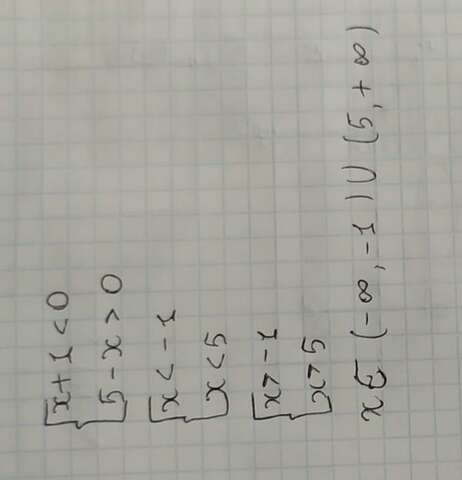 x+1<0
5-x>0
x<-1
x<5
x>-1
x>5
x∈(-∞,-1)∪(5,+∞)